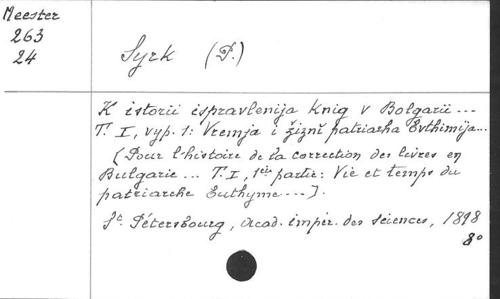 Meester
263
24
Syrk (P.)
K istorii ispravlenija knig v Bolgarii ...
T. I, vyp. 1: Vremja i žiznĭ patriarha Evthimija...
(Pour l'histoire de la correction des livres en
Bulgarie ... T. I, 1ère partie: Vie et temps du
patriarche Euthyme ...).
St. Pétersbourg, Acad. impér. des sciences, 1898
8°